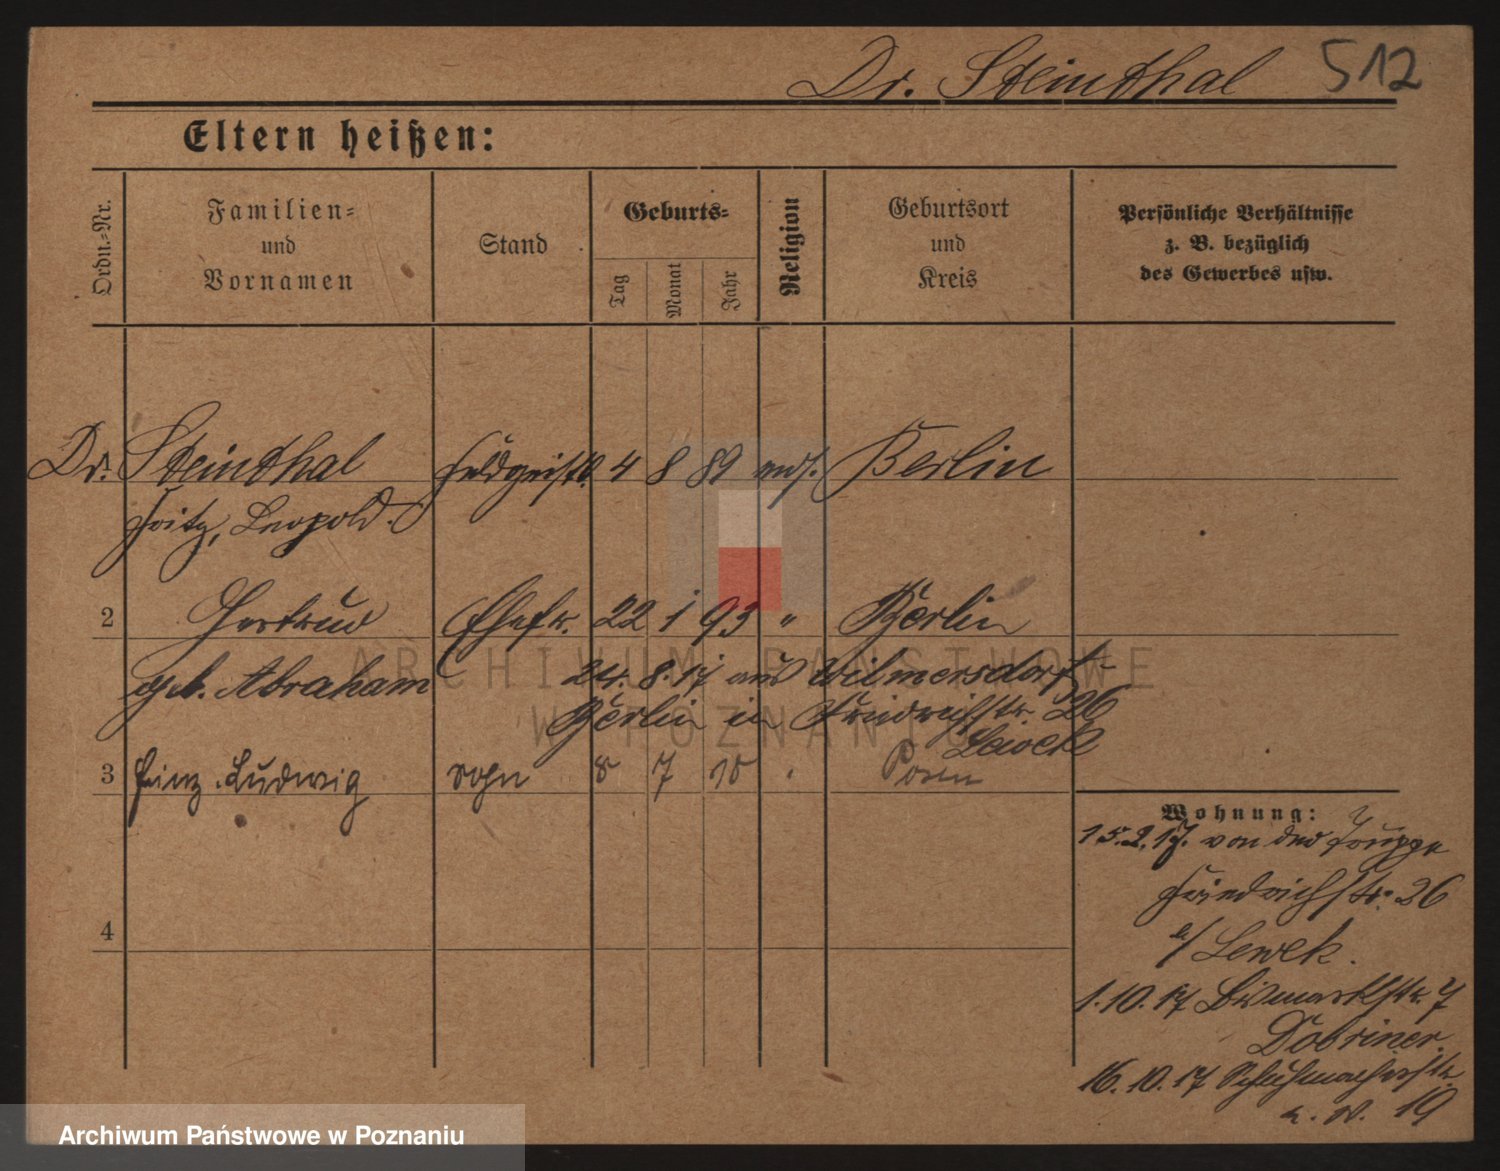 Dr. Steinthal 512
Eltern heißen:
Ordn.-Nr.
Familien-
und
Vornamen
Stand
Geburts-
Tag
Monat
Jahr
Religion
Geburtsort
und
Kreis
Persönliche Verhältnisse
z. B. bezüglich
des Gewerbes usw.
Dr. Steinthal Feldgeistl. 4 8 89 mos. Berlin
Fritz, Leopold.
2 Gertrud Ehefr. 22 1 93 " Berlin
geb. Abraham 24. 8. 17 aus Wilmersdorf
Berlin in Friedrichstr. 26
3 Heinz Ludwig Sohn 8 7 18 " Posen
4
Wohnung:
15.2.17. von der Truppe
Friedrichstr. 26
b/ Lewek.
1.10.17 Bismarckstr. 7
Dobriner.
16.10.17 Schuhmacherstr.
19
ARCHIWUM PAŃSTWOWE
W POZNANIU
Archiwum Państwowe w Poznaniu